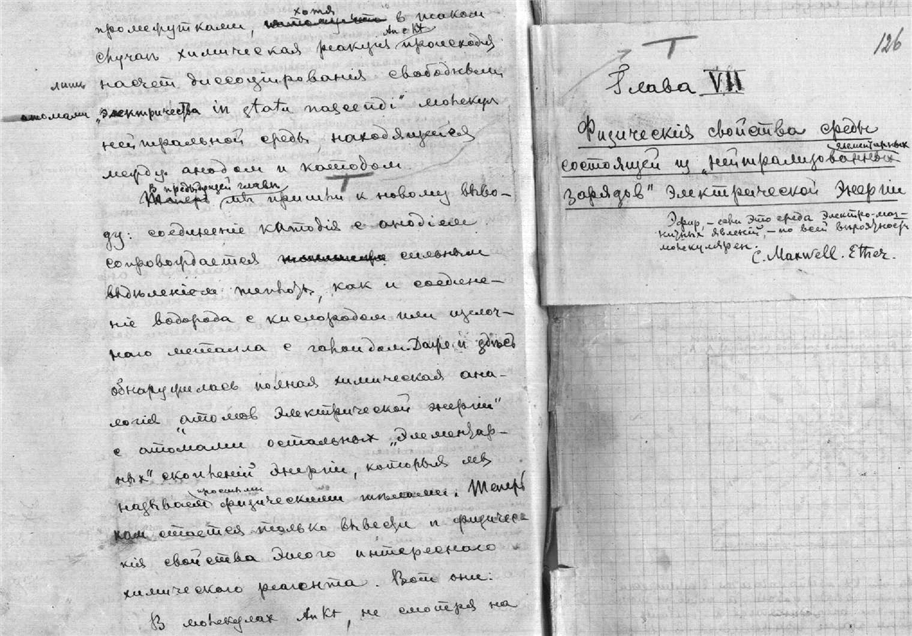 хотя
промежутками, въ такомъ
An c Kt
случаѣ химическая реакція происходитъ
лишь насчетъ диссоцированія свободными
атомами „электричества in statu nascendi“ молекулъ
нейтральной среды, находящихся
между анодомъ и катодомъ.
Въ предыдущей главѣ
мы пришли къ новому выво-
ду: соединеніе катодія съ анодіемъ
сопровождается сильнымъ
выдѣленіемъ теплоты, какъ и соедине-
ніе водорода съ кислородомъ или щелоч-
наго металла съ галоидомъ. и здѣсь
обнаружилась полная химическая ана-
логія „атомовъ электрической энергіи“
съ атомами остальныхъ „элементар-
ныхъ“ скопленій энергіи, которыя мы
простыми
называемъ физическими тѣлами. Теперь
намъ остается только вывести и физичес-
кія свойства этого интереснаго
химическаго реагента. Вотъ они:
Въ молекулахъ AnKt, не смотря на
126
Глава VII
Физическія свойства среды
элементарныхъ
состоящей изъ „нейтрализованныхъ
зарядовъ“ электрической энергіи
Эфир, — сама эта среда электро-маг-
нитныхъ явленій, — по всей вѣроятности
молекуляренъ.
C. Maxwell. Ether.